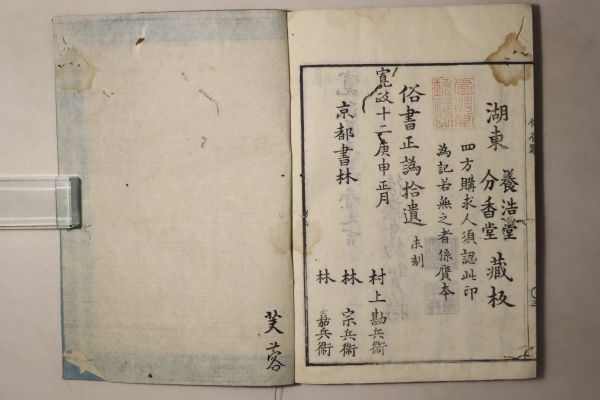 湖東 養浩堂 分香堂 藏板
四方購求人須認此印
為記若無之者係贋本
俗書正譌拾遺 未刻
寛政十二庚申正月
京都書林
村上勘兵衞
林 宗兵衞
林 嘉兵衞
芙蓉